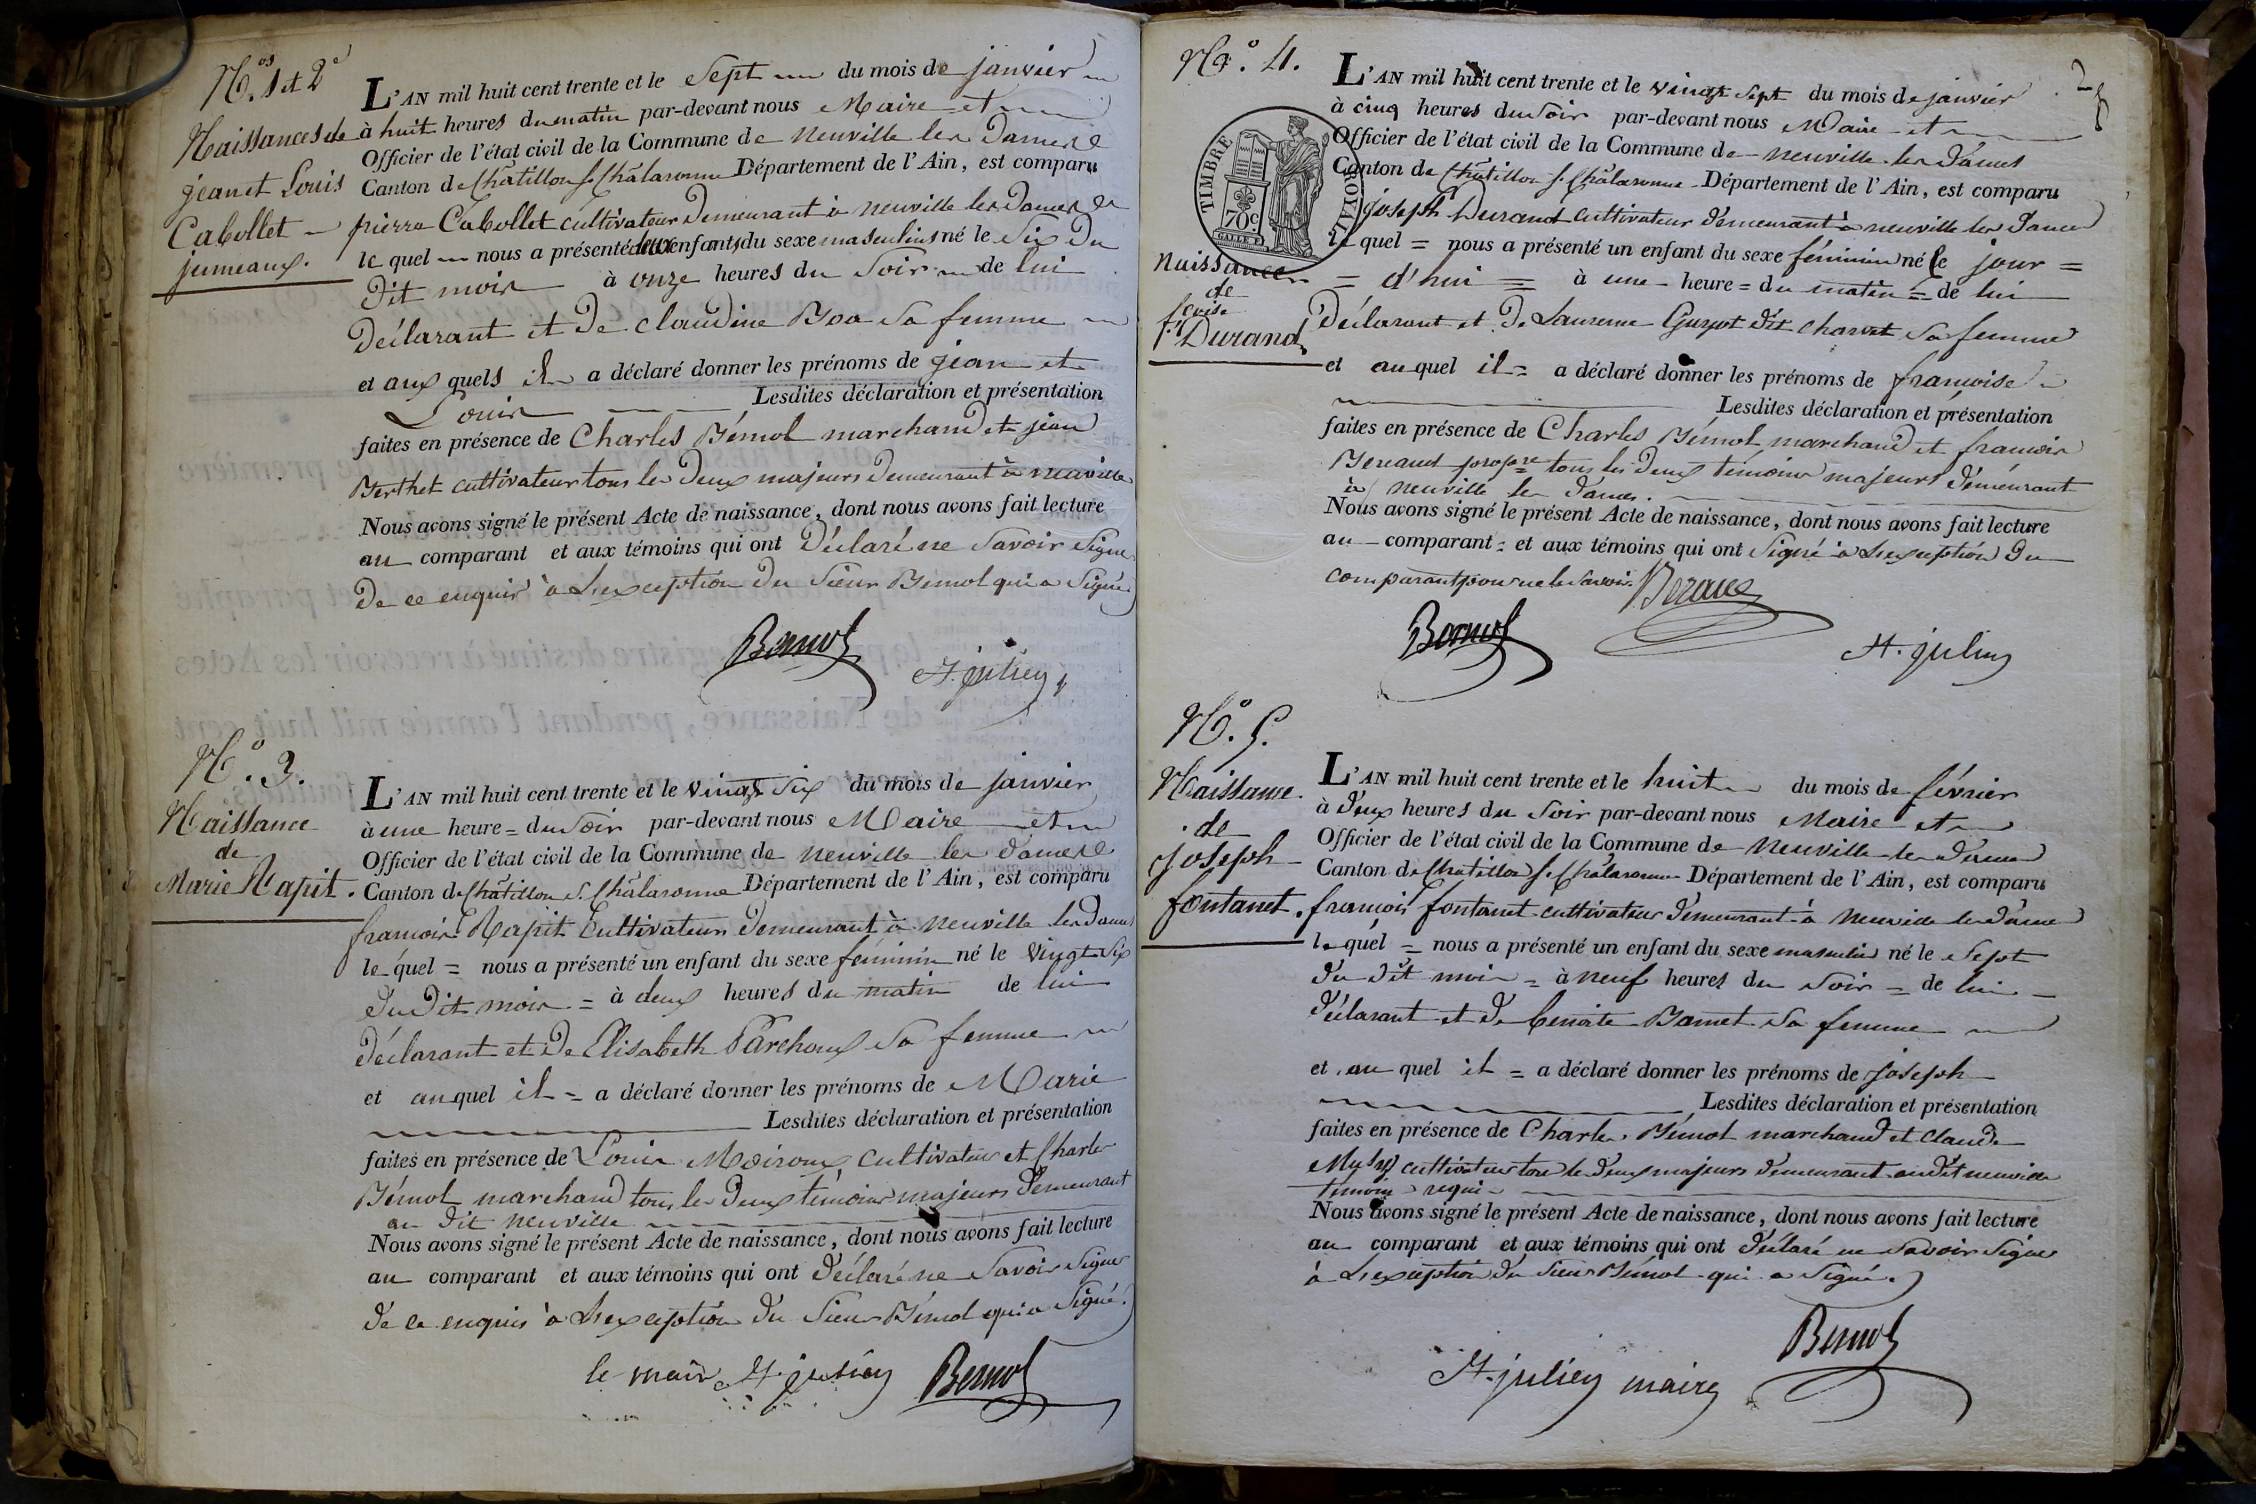 Nos. 1 et 2e
Naissances de
jean et Louis
Cabollet
jumeaux.
L'AN mil huit cent trente et le Sept du mois de janvier
à huit heures du matin par-devant nous Maire et
Officier de l'état civil de la Commune de neuville les Dames
Canton de Châtillon s. Châlaronne Département de l'Ain, est comparu
pierre Cabollet cultivateur Demeurant à neuville les Dames
le quel nous a présenté deux enfants du sexe masculins né le Six Du
Dit mois à onze heures du Soir de lui
Déclarant et De claudine Boa Sa femme
et aux quels il a déclaré donner les prénoms de jean et
Louis Lesdites déclaration et présentation
faites en présence de Charles Bémol marchand et jean
Berthet cultivateur tous les Deux majeurs Demeurant à neuville
Nous avons signé le présent Acte de naissance, dont nous avons fait lecture
au comparant et aux témoins qui ont Déclaré ne Savoir Signer
De ce enquis à L'exception Du Sieur Bémol qui a Signé
Bemol
St. julien
No. 3.
Naissance
de
Marie Rapit.
L'AN mil huit cent trente et le vingt Six du mois de janvier
à une heure = du Soir par-devant nous Maire et
Officier de l'état civil de la Commune de neuville les Dames
Canton de Châtillon s. Châlaronne Département de l'Ain, est comparu
francois Rapit Cultivateur Demeurant à neuville les Dames
le quel = nous a présenté un enfant du sexe féminin né le vingt Six
Du Dit mois = à deux heures du matin de lui
Déclarant et De Elisabeth Parchoux Sa femme
et au quel il = a déclaré donner les prénoms de Marie
Lesdites déclaration et présentation
faites en présence de Louis Moiroux cultivateur et Charles
Bémol marchand tous les Deux témoins majeurs Demeurant
au Dit neuville
Nous avons signé le présent Acte de naissance, dont nous avons fait lecture
au comparant et aux témoins qui ont Déclaré ne Savoir Signer
De ce enquis à L'exception Du Sieur Bémol qui a Signé.
le maire St. julien Bemol
2
No. 4.
TIMBRE ROYAL
70c.
Naissance
de
foise
Durand
L'AN mil huit cent trente et le vingt Sept du mois de janvier
à cinq heures du Soir par-devant nous Maire et
Officier de l'état civil de la Commune de neuville les Dames
Canton de Châtillon s. Châlaronne Département de l'Ain, est comparu
joseph Durand cultivateur Demeurant à neuville les Dames
le quel = nous a présenté un enfant du sexe féminin né le jour =
= d'hui = à une heure = du matin = de lui
Déclarant et De Laurence Guyot Dit Charvet Sa femme
et au quel il = a déclaré donner les prénoms de francoise
Lesdites déclaration et présentation
faites en présence de Charles Bémol marchand et francois
Beraud propre tous les Deux témoins majeurs Demeurant
à neuville les Dames.
Nous avons signé le présent Acte de naissance, dont nous avons fait lecture
au comparant = et aux témoins qui ont Signé à L'exception Du
comparant pour ne le Savoir.
Beraud
Bemol
St. julien
No. 5.
Naissance
de
joseph
fontanet.
L'AN mil huit cent trente et le huit du mois de février
à Deux heures du Soir par-devant nous Maire et
Officier de l'état civil de la Commune de neuville les Dames
Canton de Chatillon s. Châlaronne Département de l'Ain, est comparu
francois fontanet cultivateur Demeurant à neuville les Dames
le quel = nous a présenté un enfant du sexe masculin né le Sept
Du Dit mois = à neuf heures du Soir = de lui
Déclarant et De benoite Bamet Sa femme
et au quel il = a déclaré donner les prénoms de joseph
Lesdites déclaration et présentation
faites en présence de Charles Bémol marchand et claude
cultivateur tous les Deux majeurs Demeurant au Dit neuville
témoins requis
Nous avons signé le présent Acte de naissance, dont nous avons fait lecture
au comparant et aux témoins qui ont Déclaré ne Savoir Signer
à L'exception Du Sieur Bémol qui a Signé.
Bemol
St. julien maire